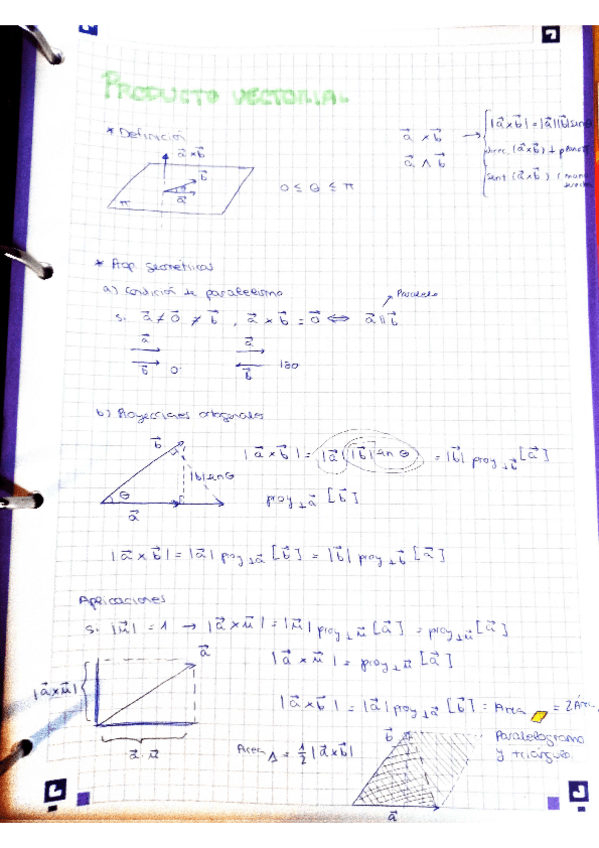 PRODUCTO VECTORIAL
* Definición
a⃗ × b⃗ → |a⃗×b⃗| = |a⃗||b⃗| sinθ
a⃗ ∧ b⃗
direc (a⃗×b⃗) ⊥ plano π
sent (a⃗×b⃗) (mano
a⃗×b⃗
b⃗
a⃗
π
0 ≤ θ ≤ π
* Ap. geométricas
a) Condición de paralelismo
Paralelo
si a⃗ ≠ 0⃗ ≠ b⃗, a⃗ × b⃗ = 0⃗ ⟺ a⃗ ∥ b⃗
a⃗ a⃗
b⃗ 0 b⃗ 180
b) Proyecciones ortogonales
b⃗
|b|sinθ
θ
a⃗
|a⃗×b⃗| = |a⃗||b⃗|sinθ = |b⃗| proy⊥b⃗ [a⃗]
proy⊥a⃗ [b⃗]
|a⃗×b⃗| = |a⃗| proy⊥a⃗ [b⃗] = |b⃗| proy⊥b⃗ [a⃗]
Aplicaciones
si |u⃗| = 1 → |a⃗×u⃗| = |u⃗| proy⊥u⃗ [a⃗] = proy⊥u⃗ [a⃗]
a⃗
|a⃗×u⃗| = proy⊥u⃗ [a⃗]
|a⃗×u⃗|
|a⃗×b⃗| = |a⃗| proy⊥a⃗ [b⃗] = Area = 2Área
a⃗ · u⃗
Area △ = 1/2 |a⃗×b⃗|
b⃗
Paralelogramo
y triángulo.
a⃗